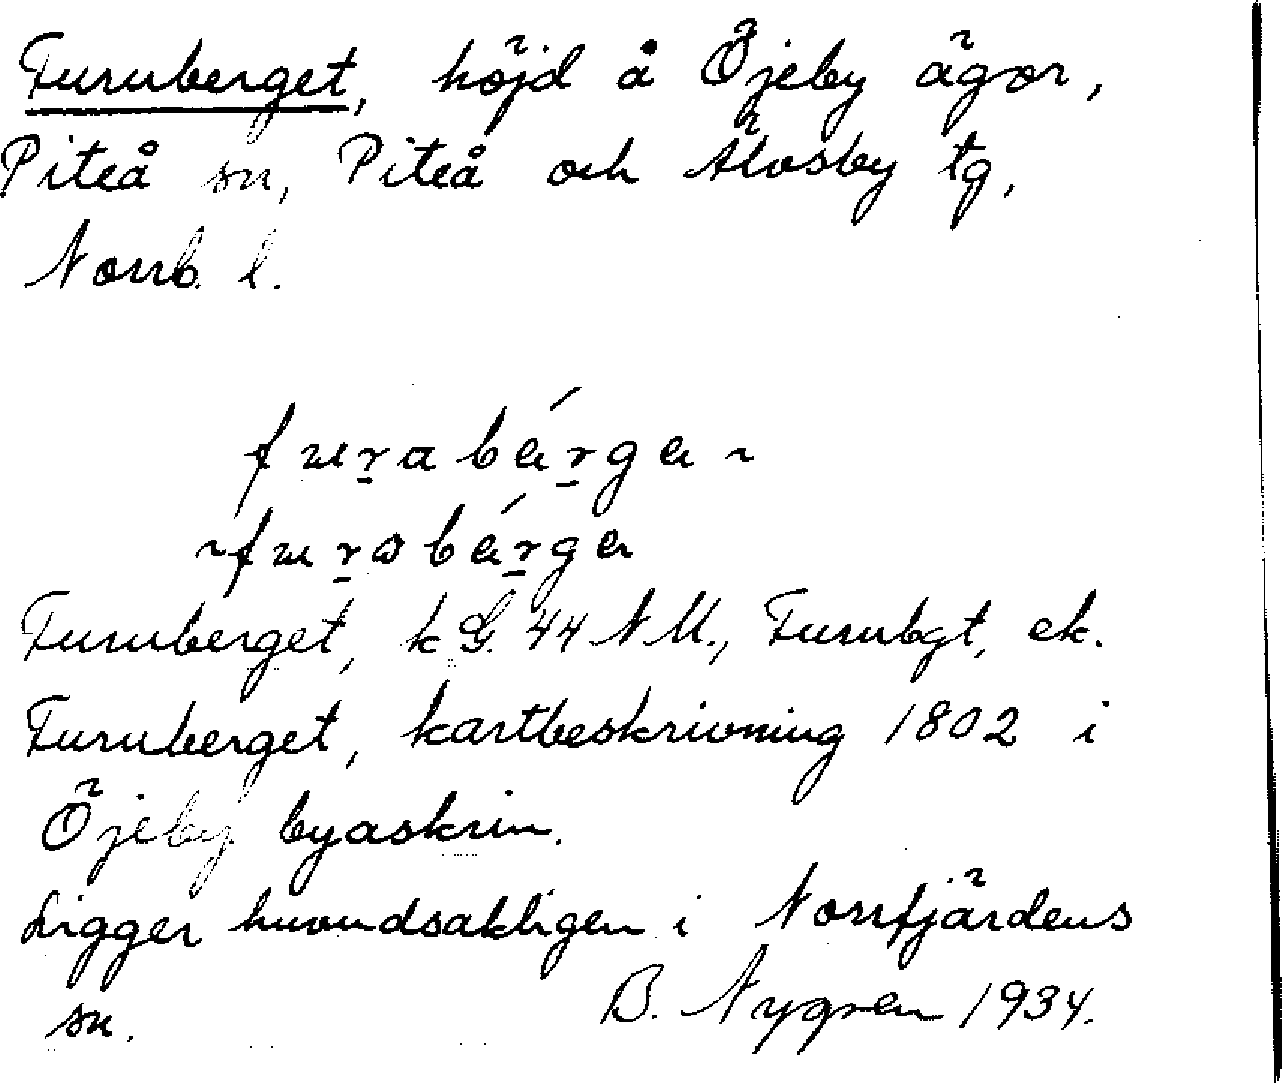 Furuberget, höjd å Öjeby ägor,
Piteå sn, Piteå och Älvsby tg,
Norrb. l.
furabérge ~
~ furobérge
Furuberget, k G. 44 N M., Furubgt, ek.
Furuberget, kartbeskrivning 1802 i
Öjeby byaskrin.
Ligger huvudsakligen i Norrfjärdens
sn. B. Nygren 1934.